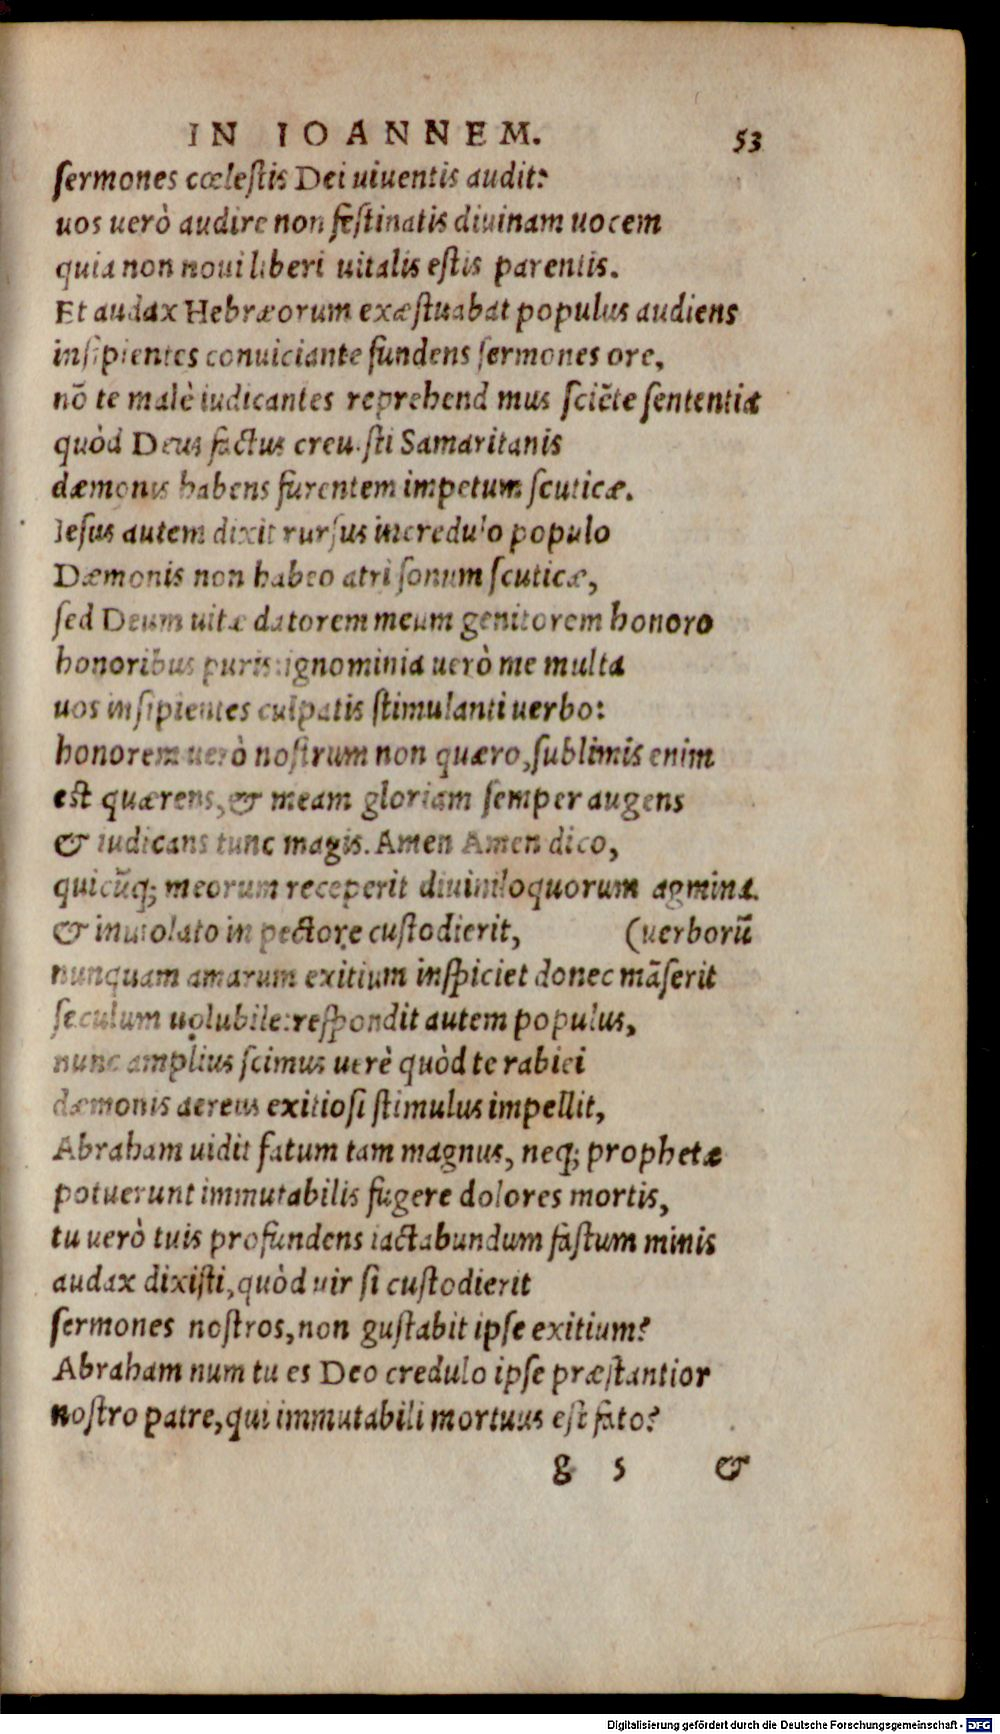 IN IOANNEM. 53
sermones cœlestis Dei uiuentis audit:
uos uerò audire non festinatis diuinam uocem
quia non noui liberi uitalis estis parentis.
Et audax Hebræorum exæstuabat populus audiens
insipientes conuiciante fundens sermones ore,
nō te malè iudicantes reprehend mus sciēte sententia
quòd Deus factus creu sti Samaritanis
dæmonis habens furentem impetum scuticæ.
Iesus autem dixit rursus incredulo populo
Dæmonis non habeo atri sonum scuticæ,
sed Deum uitæ datorem meum genitorem honoro
honoribus puris: ignominia uerò me multa
uos insipientes culpatis stimulanti uerbo:
honorem uerò nostrum non quæro, sublimis enim
est quærens, & meam gloriam semper augens
& iudicans tunc magis. Amen Amen dico,
quicūq; meorum receperit diuiniloquorum agmina.
& inuiolato in pectore custodierit, (uerborū
nunquam amarum exitium inspiciet donec māserit
seculum uolubile: respondit autem populus,
nunc amplius scimus uerè quòd te rabiei
dæmonis aereus exitiosi stimulus impellit,
Abraham uidit fatum tam magnus, neq; prophetæ
potuerunt immutabilis fugere dolores mortis,
tu uerò tuis profundens iactabundum fastum minis
audax dixisti, quòd uir si custodierit
sermones nostros, non gustabit ipse exitium?
Abraham num tu es Deo credulo ipse præstantior
nostro patre, qui immutabili mortuus est fato?
g 5 &
Digitalisierung gefördert durch die Deutsche Forschungsgemeinschaft - DFG